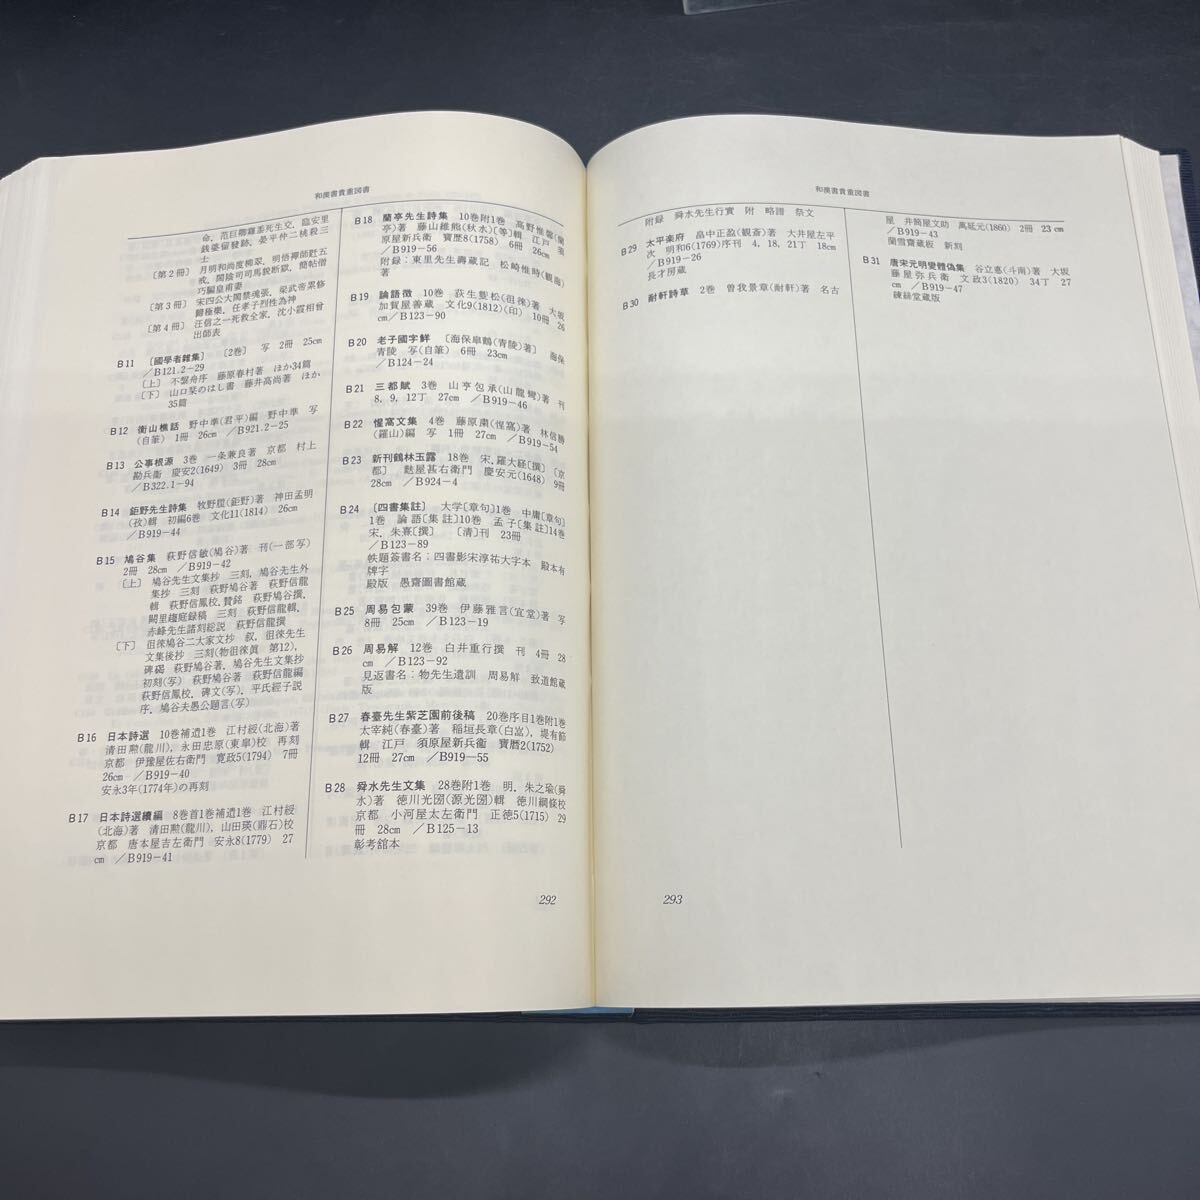 和漢書貴重図書
命，范巨卿雞黍死生交，臨安里
錢婆留發跡，晏平仲二桃殺三
士
〔第2冊〕 月明和尚度柳翠，明悟禪師趕五
戒，鬧陰司司馬貌斷獄，簡帖僧
巧騙皇甫妻
〔第3冊〕 宋四公大鬧禁魂張，梁武帝累修
歸極樂，任孝子烈性為神
〔第4冊〕 汪信之一死救全家，沈小霞相會
出師表
B11 〔國學者雜集〕 〔2巻〕 写 2冊 25cm
／B121.2−29
〔上〕 不盥舟序 藤原春村著 ほか34篇
〔下〕 山口栞のはし書 藤井高尚著 ほか
35篇
B12 衡山樵話 野中準(君平)編 野中準 写
(自筆) 1冊 26cm ／B921.2−25
B13 公事根源 3巻 一条兼良著 京都 村上
勘兵衞 慶安2(1649) 3冊 28cm
／B322.1−94
B14 鉅野先生詩集 牧野履(鉅野)著 神田孟明
(孜)輯 初編6巻 文化11(1814) 26cm
／B919−44
B15 鳩谷集 萩野信敏(鳩谷)著 刊(一部写)
2冊 28cm ／B919−42
〔上〕 鳩谷先生文集抄 三刻，鳩谷先生外
集抄 三刻 萩野鳩谷著 萩野信龍
輯 萩野信鳳校，賛銘 萩野鳩谷撰，
闕里趨庭録稿 三刻 萩野信龍輯，
赤峰先生諸刻総説 萩野信龍撰
〔下〕 徂徠鳩谷二大家文抄 叙，徂徠先生
文集後抄 三刻(物徂徠眞 第12)，
碑碣 萩野鳩谷著，鳩谷先生文集抄
初刻(写) 萩野鳩谷著 萩野信龍編
萩野信鳳校，碑文(写)，平氏經子説
序，鳩谷夫愚公題言(写)
B16 日本詩選 10巻補遺1巻 江村綬(北海)著
清田勲(龍川)，永田忠原(東皐)校 再刻
京都 伊豫屋佐右衛門 寛政5(1794) 7冊
26cm ／B919−40
安永3年(1774年)の再刻
B17 日本詩選續編 8巻首1巻補遺1巻 江村綬
(北海)著 清田勲(龍川)，山田瑛(鼎石)校
京都 唐本屋吉左衛門 安永8(1779) 27
cm ／B919−41
B18 蘭亭先生詩集 10巻附1巻 高野惟馨(蘭
亭)著 藤山維熊(秋水)〔等〕輯 江戸 須
原屋新兵衛 寶暦8(1758) 6冊 26cm
／B919−56
附録：東里先生壽蔵記 松崎惟時(観海)
著
B19 論語徴 10巻 荻生雙松(徂徠)著 大坂
加賀屋善蔵 文化9(1812)(印) 10冊 26
cm／B123−90
B20 老子國字觧 〔海保皐鶴(青陵)著〕 海保
青陵 写(自筆) 6冊 23cm
／B124−24
B21 三都賦 3巻 山亨包承(山龍彎)著 刊
8，9，12丁 27cm ／B919−46
B22 惺窩文集 4巻 藤原粛(惺窩)著 林信勝
(羅山)編 写 1冊 27cm ／B919−54
B23 新刊鶴林玉露 18巻 宋．羅大経〔撰〕 〔京
都〕 麩屋甚右衛門 慶安元(1648) 9冊
28cm ／B924−4
B24 〔四書集註〕 大学〔章句〕1巻 中庸〔章句〕
1巻 論語〔集註〕10巻 孟子〔集註〕14巻
宋．朱熹〔撰〕 〔清〕刊 23冊
／B123−89
帙題簽書名：四書影宋淳祐大字本 殿本有
牌字
殿版 愚齋圖書館蔵
B25 周易包蒙 39巻 伊藤雅言(宜堂)著 写
8冊 25cm ／B123−19
B26 周易解 12巻 白井重行撰 刊 4冊 28
cm ／B123−92
見返書名：物先生遺訓 周易解 致道館蔵
版
B27 春臺先生紫芝園前後稿 20巻序目1巻附1巻
太宰純(春臺)著 稲垣長章(白嵓)，堤有節
輯 江戸 須原屋新兵衞 寶暦2(1752)
12冊 27cm ／B919−55
B28 舜水先生文集 28巻附1巻 明．朱之瑜(舜
水)著 徳川光圀(源光圀)輯 徳川綱條校
京都 小河屋太左衛門 正徳5(1715) 29
冊 28cm ／B125−13
彰考舘本
292
和漢書貴重図書
附録 舜水先生行實 附 略譜 祭文
B29 太平楽府 畠中正盈(観斎)著 大井屋左平
次 明和6(1769)序刊 4，18，21丁 18cm
／B919−26
長才房蔵
B30 耐軒詩草 2巻 曽我景章(耐軒)著 名古
屋 井筒屋文助 萬延元(1860) 2冊 23cm
／B919−43
蘭雪齋蔵板 新刻
B31 唐宋元明變體偽集 谷立悳(斗南)著 大坂
藤屋弥兵衛 文政3(1820) 34丁 27
cm ／B919−47
練絲堂蔵版
293